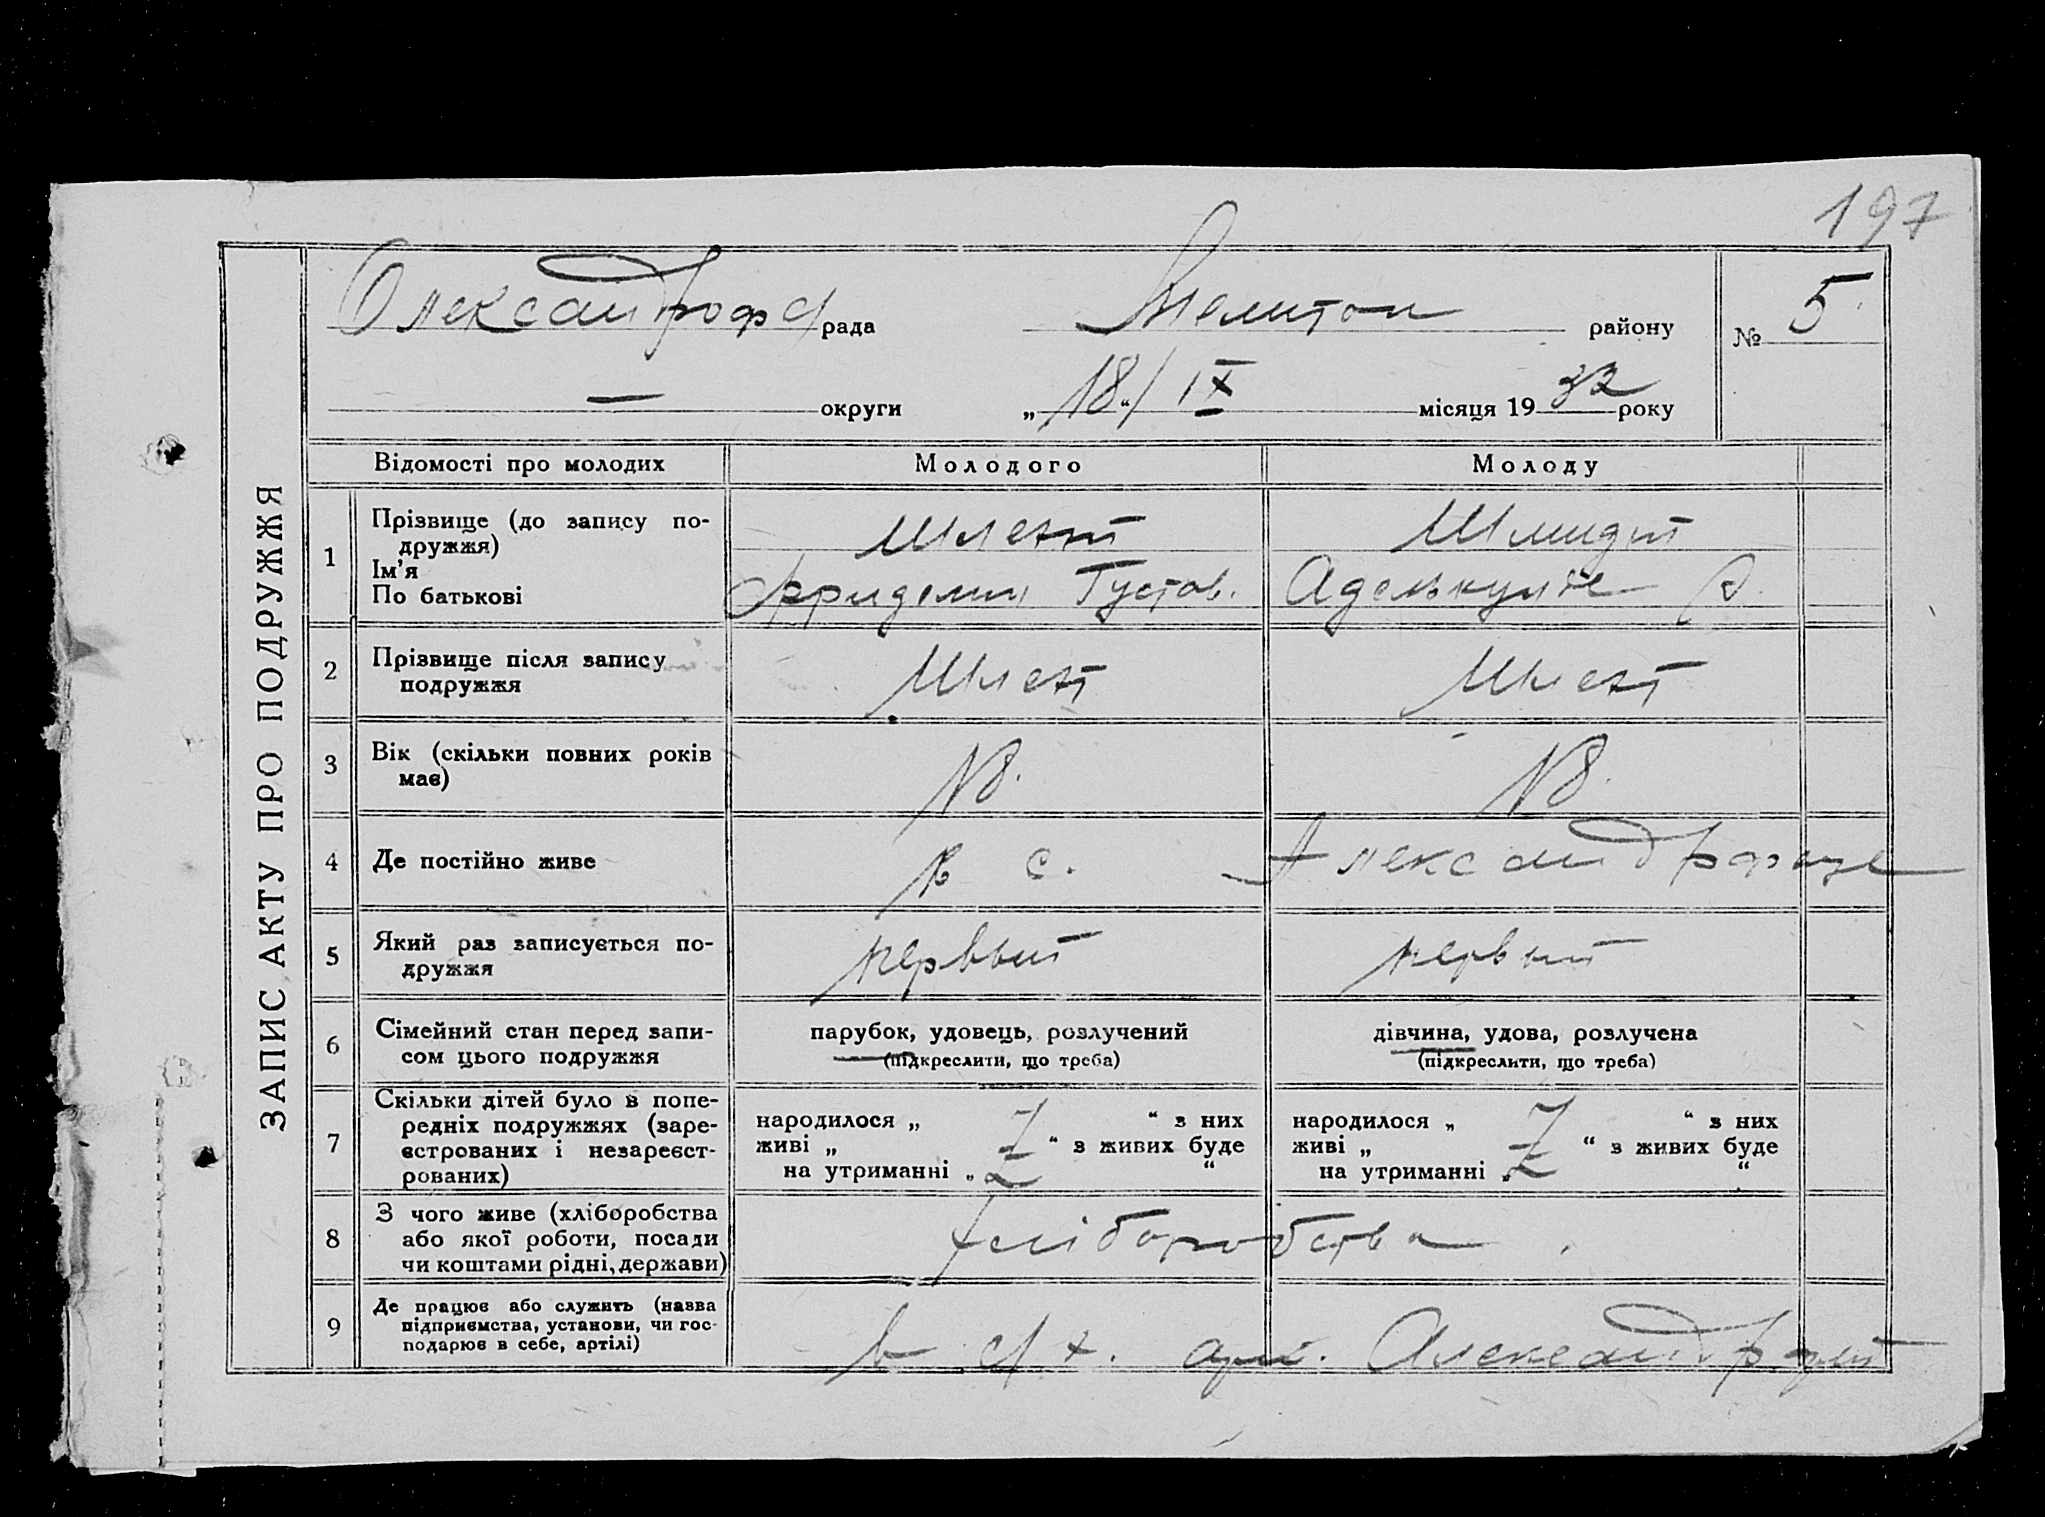 197
Олександроф с/рада Мелитоп району № 5
— округи „18“/ IX місяця 1932 року
ЗАПИС АКТУ ПРО ПОДРУЖЖЯ
Відомості про молодих Молодого Молоду
1 Прізвище (до запису подружжя) Шмидт
Ім’я
По батькові Густов.
2 Прізвище після запису подружжя
3 Вік (скільки повних років має) 18. 18.
4 Де постійно живе в с.
5 Який раз записується подружжя первый первый
6 Сімейний стан перед записом цього подружжя парубок, удовець, розлучений дівчина, удова, розлучена
(підкреслити, що треба) (підкреслити, що треба)
7 Скільки дітей було в попередніх подружжях (зареєстрованих і незареєстрованих) народилося „ “ з них народилося „ “ з них
живі „ “ з живих буде живі „ “ з живих буде
на утриманні „ “ на утриманні „ “
8 З чого живе (хліборобства або якої роботи, посади чи коштами рідні, держави) хліборобства.
9 Де працює або служить (назва підприємства, установи, чи господарює в себе, артілі) в с/х. арт.